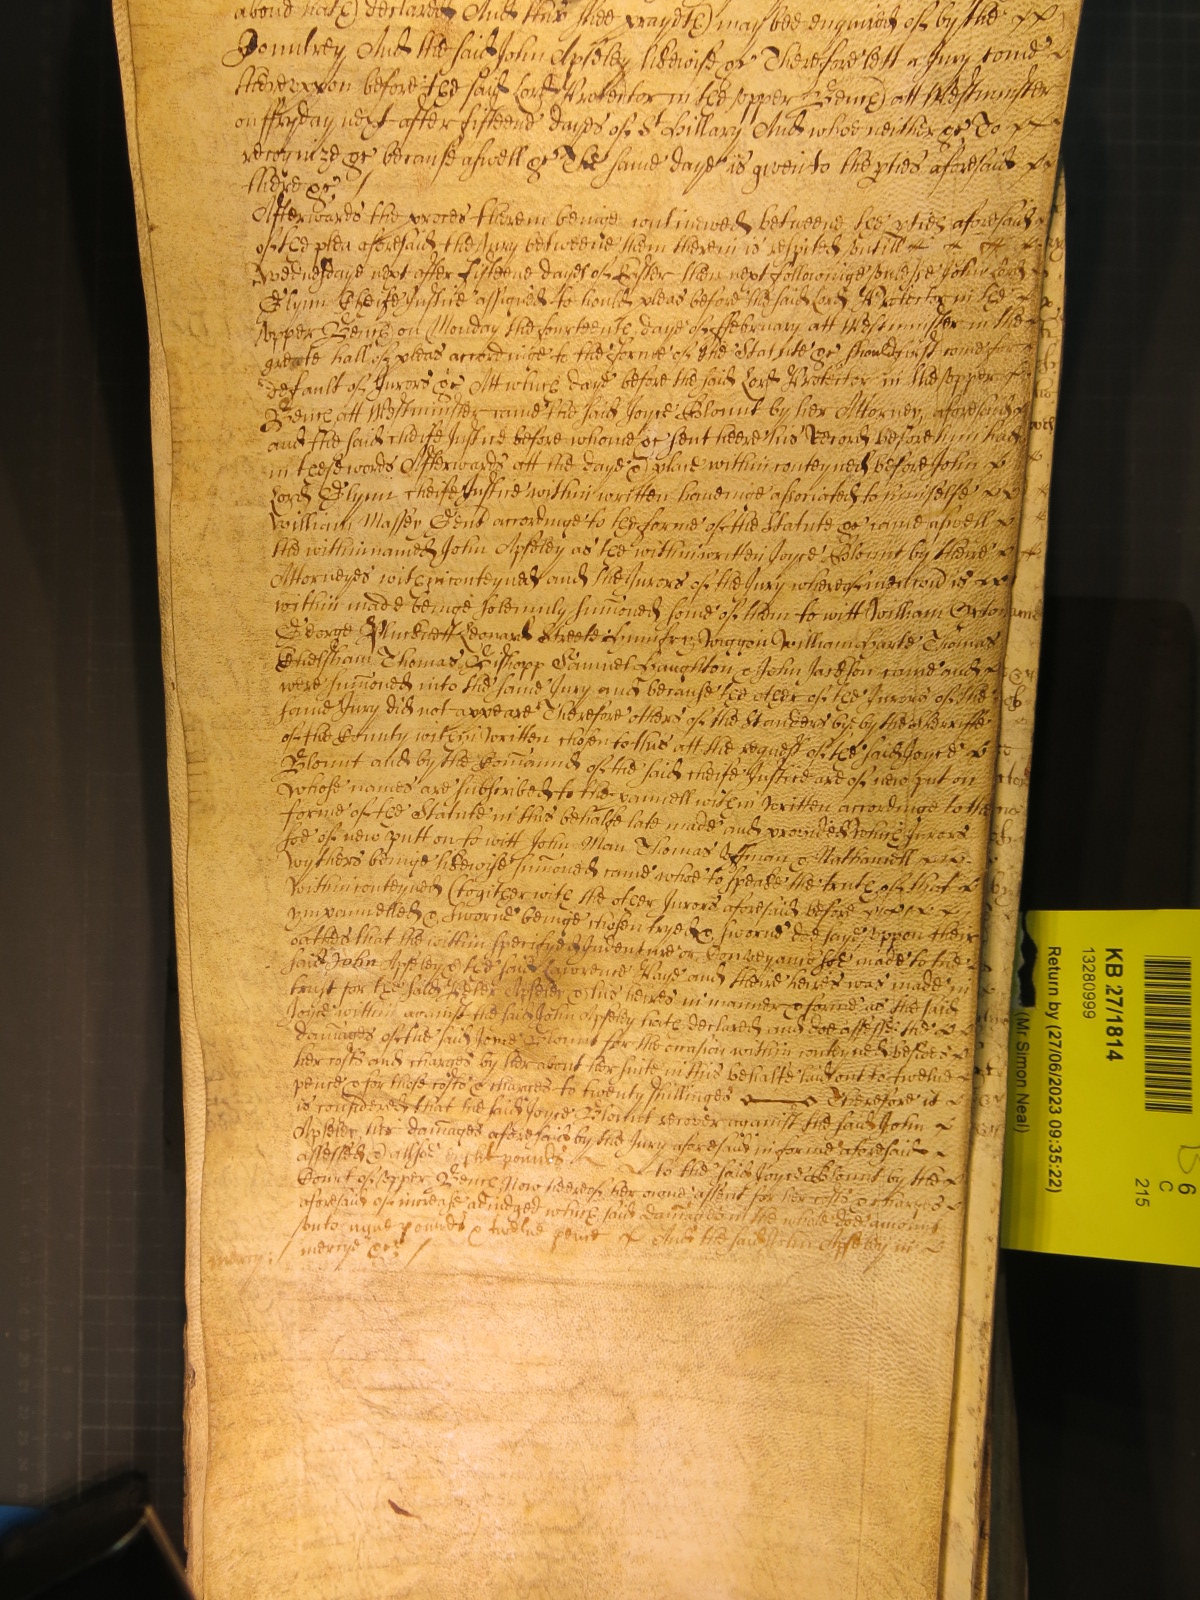 above hath declared And this shee prayeth may bee enquired of by the
Countrey And the said John Apsley likewise &c Therefore lett a Jury come
thereuppon before the said Lord Protector in the upper Bench att Westminster
on ffryday next after fifteene dayes of St Hillary And whoe neither &c To
recognize &c because aswell &c The same daye is given to the pties aforesaid
there &c /
Afterwards the proces therein beinge continewed betweene the pties aforesaid
of the plea aforesaid the Jury betweene them therein is respited untill
Wednesdaye next after fifteene dayes of Easter then next followinge unlesse John Lord
Glynn Cheife Justice assigned to hould pleas before the said Lord Protector in the
upper Bench on Monday the fourteenth daye of ffebruary att Westminster in the
greate hall of pleas accordinge to the forme of the Statute &c should first come for
default of Jurors &c Att which daye before the said Lord Protector in the upper
Bench att Westminster came the said Joyce Blount by her Attorney aforesaid
and the said cheife Justice before whome &c sent heere his Record before him had
in these words Afterwards att the daye & place within conteyned before John
Lord Glynn cheife Justice within written haveinge associated to himselfe
William Massey Gent accordinge to the forme of the Statute &c came aswell
the within named John Apseley as the within written Joyce Blount by theire
Attorneyes within conteyned and the Jurors of the Jury whereof mencion is
within made beinge solemnly sumoned some of them to witt William
George Leonard Streete Humfry Wiggon William Harte Thomas
Thomas Bishopp Samuel Haughton & John Jackson came and
were sumoned into the same Jury and because the other of the Jurors of the
same Jury did not appeare Therefore others of the Standers by, by the Sherriffe
of the County within written chosen to this att the request of the said Joyce
Blount and by the Comaund of the said cheife Justice are of new put on
whose names are subscribed to the pannell within written accordinge to the
forme of the Statute in this behalfe late made and provided which Jurors
soe of new putt on to witt John Man Thomas & Nathaniell
Wythers beinge likewise sumoned came whoe to speake the truth of that
within conteyned (togither with the other Jurors aforesaid before
ympannelled & sworne beinge chosen tryed & sworne doe saye uppon their
oathes that the within specifyed Indenture or Conveyance soe made to the
said John Apseley & the said Lawrence Kaye and theire heires was made in
trust for the said Peter Apseley & his heires in manner & forme as the said
Joyce within against the said John Apseley hath declared and doe assesse the
damages of the said Joyce Blount for the occasion within conteyned besides
her costs and charges by her about her suite in this behalfe laid out to twelve
pence & for those costs & charges to twenty shillinges Therefore it
is considered that the said Joyce Blount recover against the said John
Apseley her damages aforesaid by the Jury aforesaid in forme aforesaid
assessed & allsoe eight pounds to the said Joyce Blount by the
Court of upper Bench Now heere of her owne assent for her costs & charges
aforesaid of increase adjudged which said damages in the whole doe amount
unto nyne pounds & twelve pence And the said John Apseley in
mercye &c /
mercy:
KB 27/1814
13280999
Return by (27/06/2023 09:35:22)
(Mr Simon Neal)
6
C
215